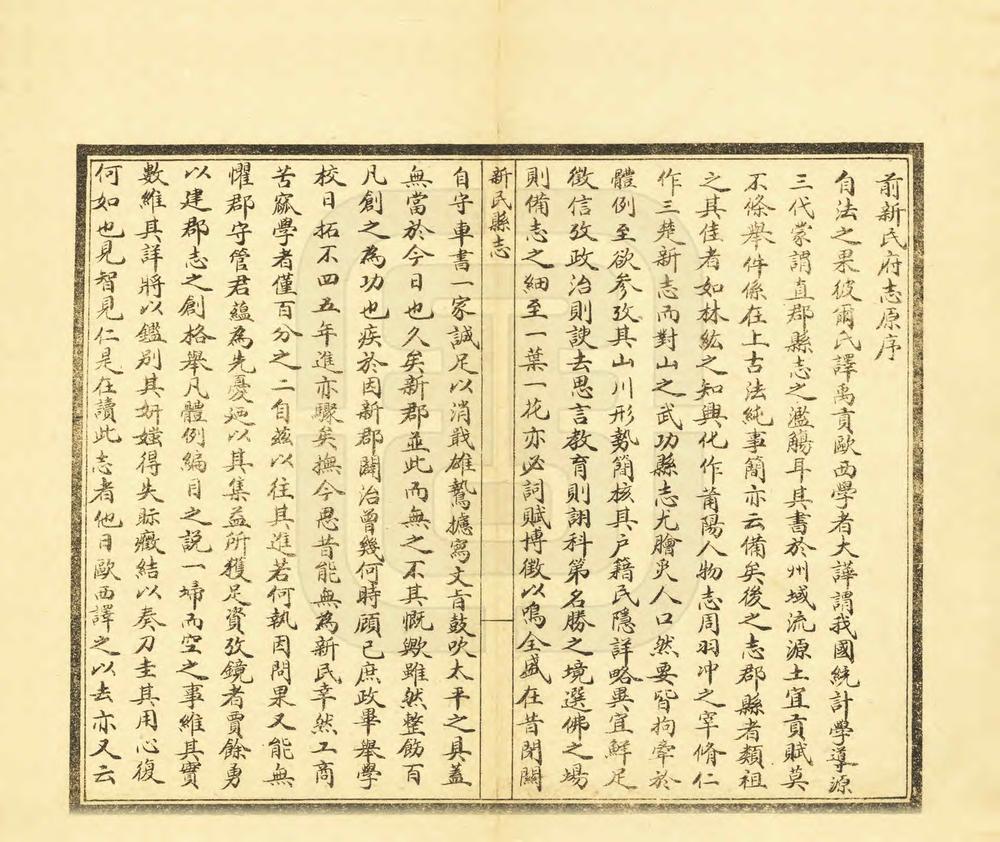 前新民府志原序
自法之果彼爾氏譯禹貢歐西學者大譁謂我國統計學導源
三代蒙謂直郡縣志之濫觴耳其書於州域流源土宜貢賦莫
不條舉件係在上古法純事簡亦云備矣後之志郡縣者類祖
之其佳者如林紘之知興化作莆陽人物志周羽冲之宰脩仁
作三楚新志而對山之武功縣志尤膾炙人口然要皆拘牽於
體例至欲參攷其山川形勢簡核其户籍民隱詳略異宜鮮足
徵信攷政治則諛去思言教育則詡科第名勝之境選佛之場
則備志之細至一葉一花亦必詞賦博徵以鳴全盛在昔閉關
新民縣志
自守車書一家誠足以消戢雄驁攄寫文旨鼓吹太平之具蓋
無當於今日也久矣新郡並此而無之不其慨歟雖然整飭百
凡創之為功也疾於因新郡闢治曾幾何時顧已庶政畢舉學
校日拓不四五年進亦驟矣撫今思昔能無為新民幸然工商
苦窳學者僅百分之二自茲以往其進若何執因問果又能無
懼郡守管君蘊為先憂廼以其集益所獲足資攷鏡者賈餘勇
以建郡志之創格舉凡體例編目之説一埽而空之事維其實
數維其詳將以鑑別其妍媸得失眎癥結以奏刀圭其用心復
何如也見智見仁是在讀此志者他日歐西譯之以去亦又云